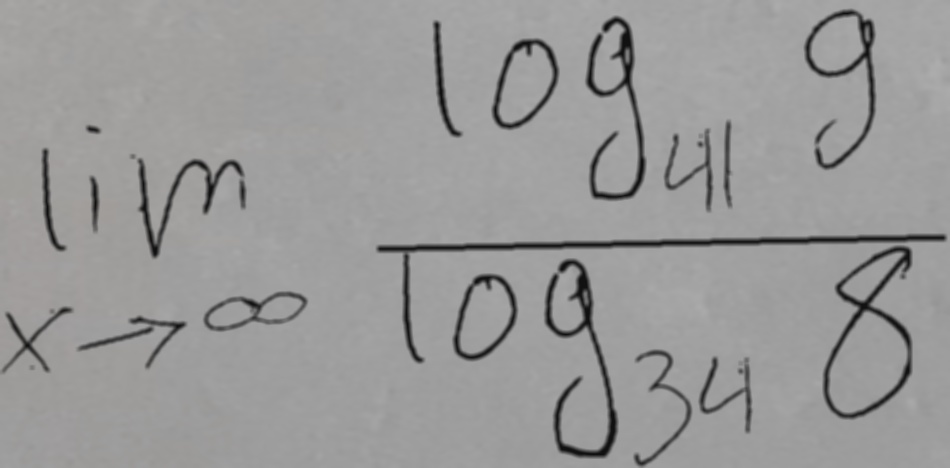 \lim_{x \to \infty} \frac{\log_{41} 9}{\log_{34} 8}